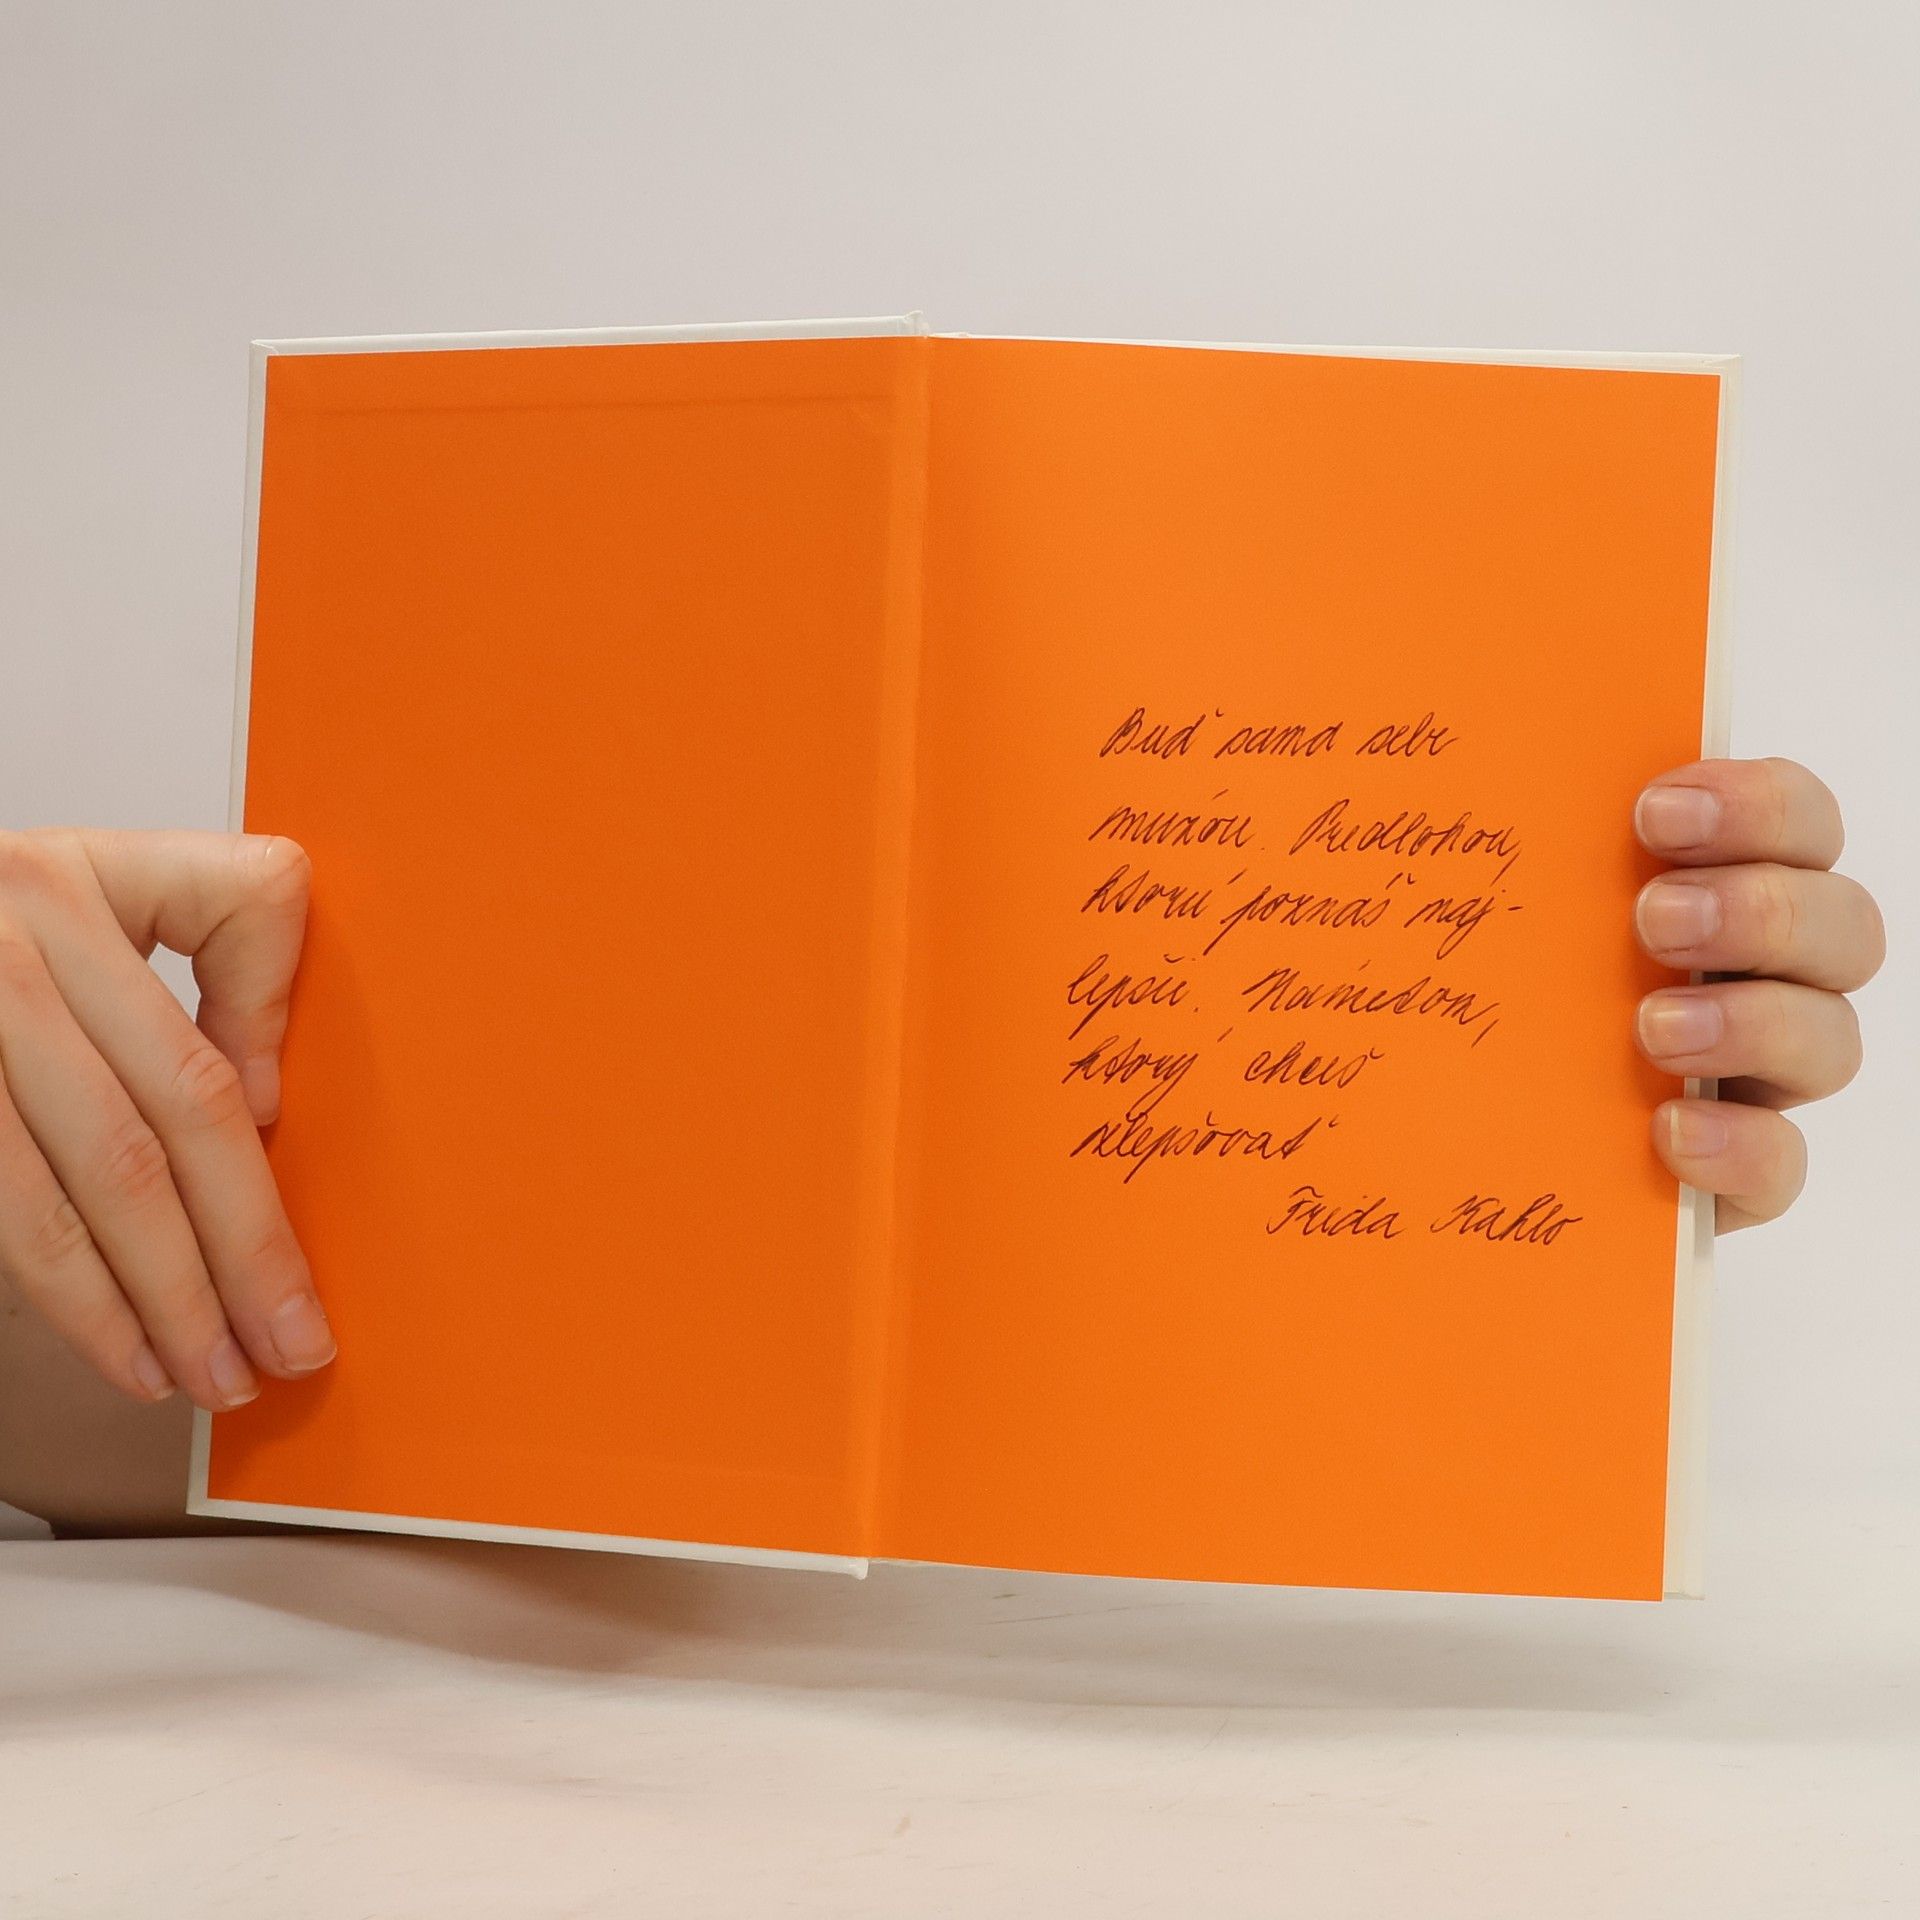 Buď sama sebe
múzou. Predlohou,
ktorú poznáš naj-
lepšie. Námetom,
ktorý chceš
zlepšovať
Frida Kahlo